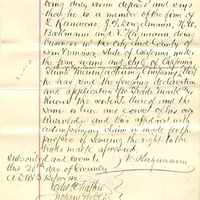 being duly sworn deposes and says
that he is a member of the firm of
J. Conzelmann, H. W.
Bachmann and F. Hagemann, doing
business in the City and County of
San Francisco, State of California under
the firm name and style of California
Manufacturing Company; that
he has read the foregoing declaration
and application for Trade Mark and
knows the contents thereof and the
same is true and correct of his own
knowledge and this affidavit with
accompanying claim is made for the
purpose of securing the right to the
trade mark aforesaid.
Subscribed and sworn to F. Hagemann
this 26th day of December
A.D. before me
Notary Public